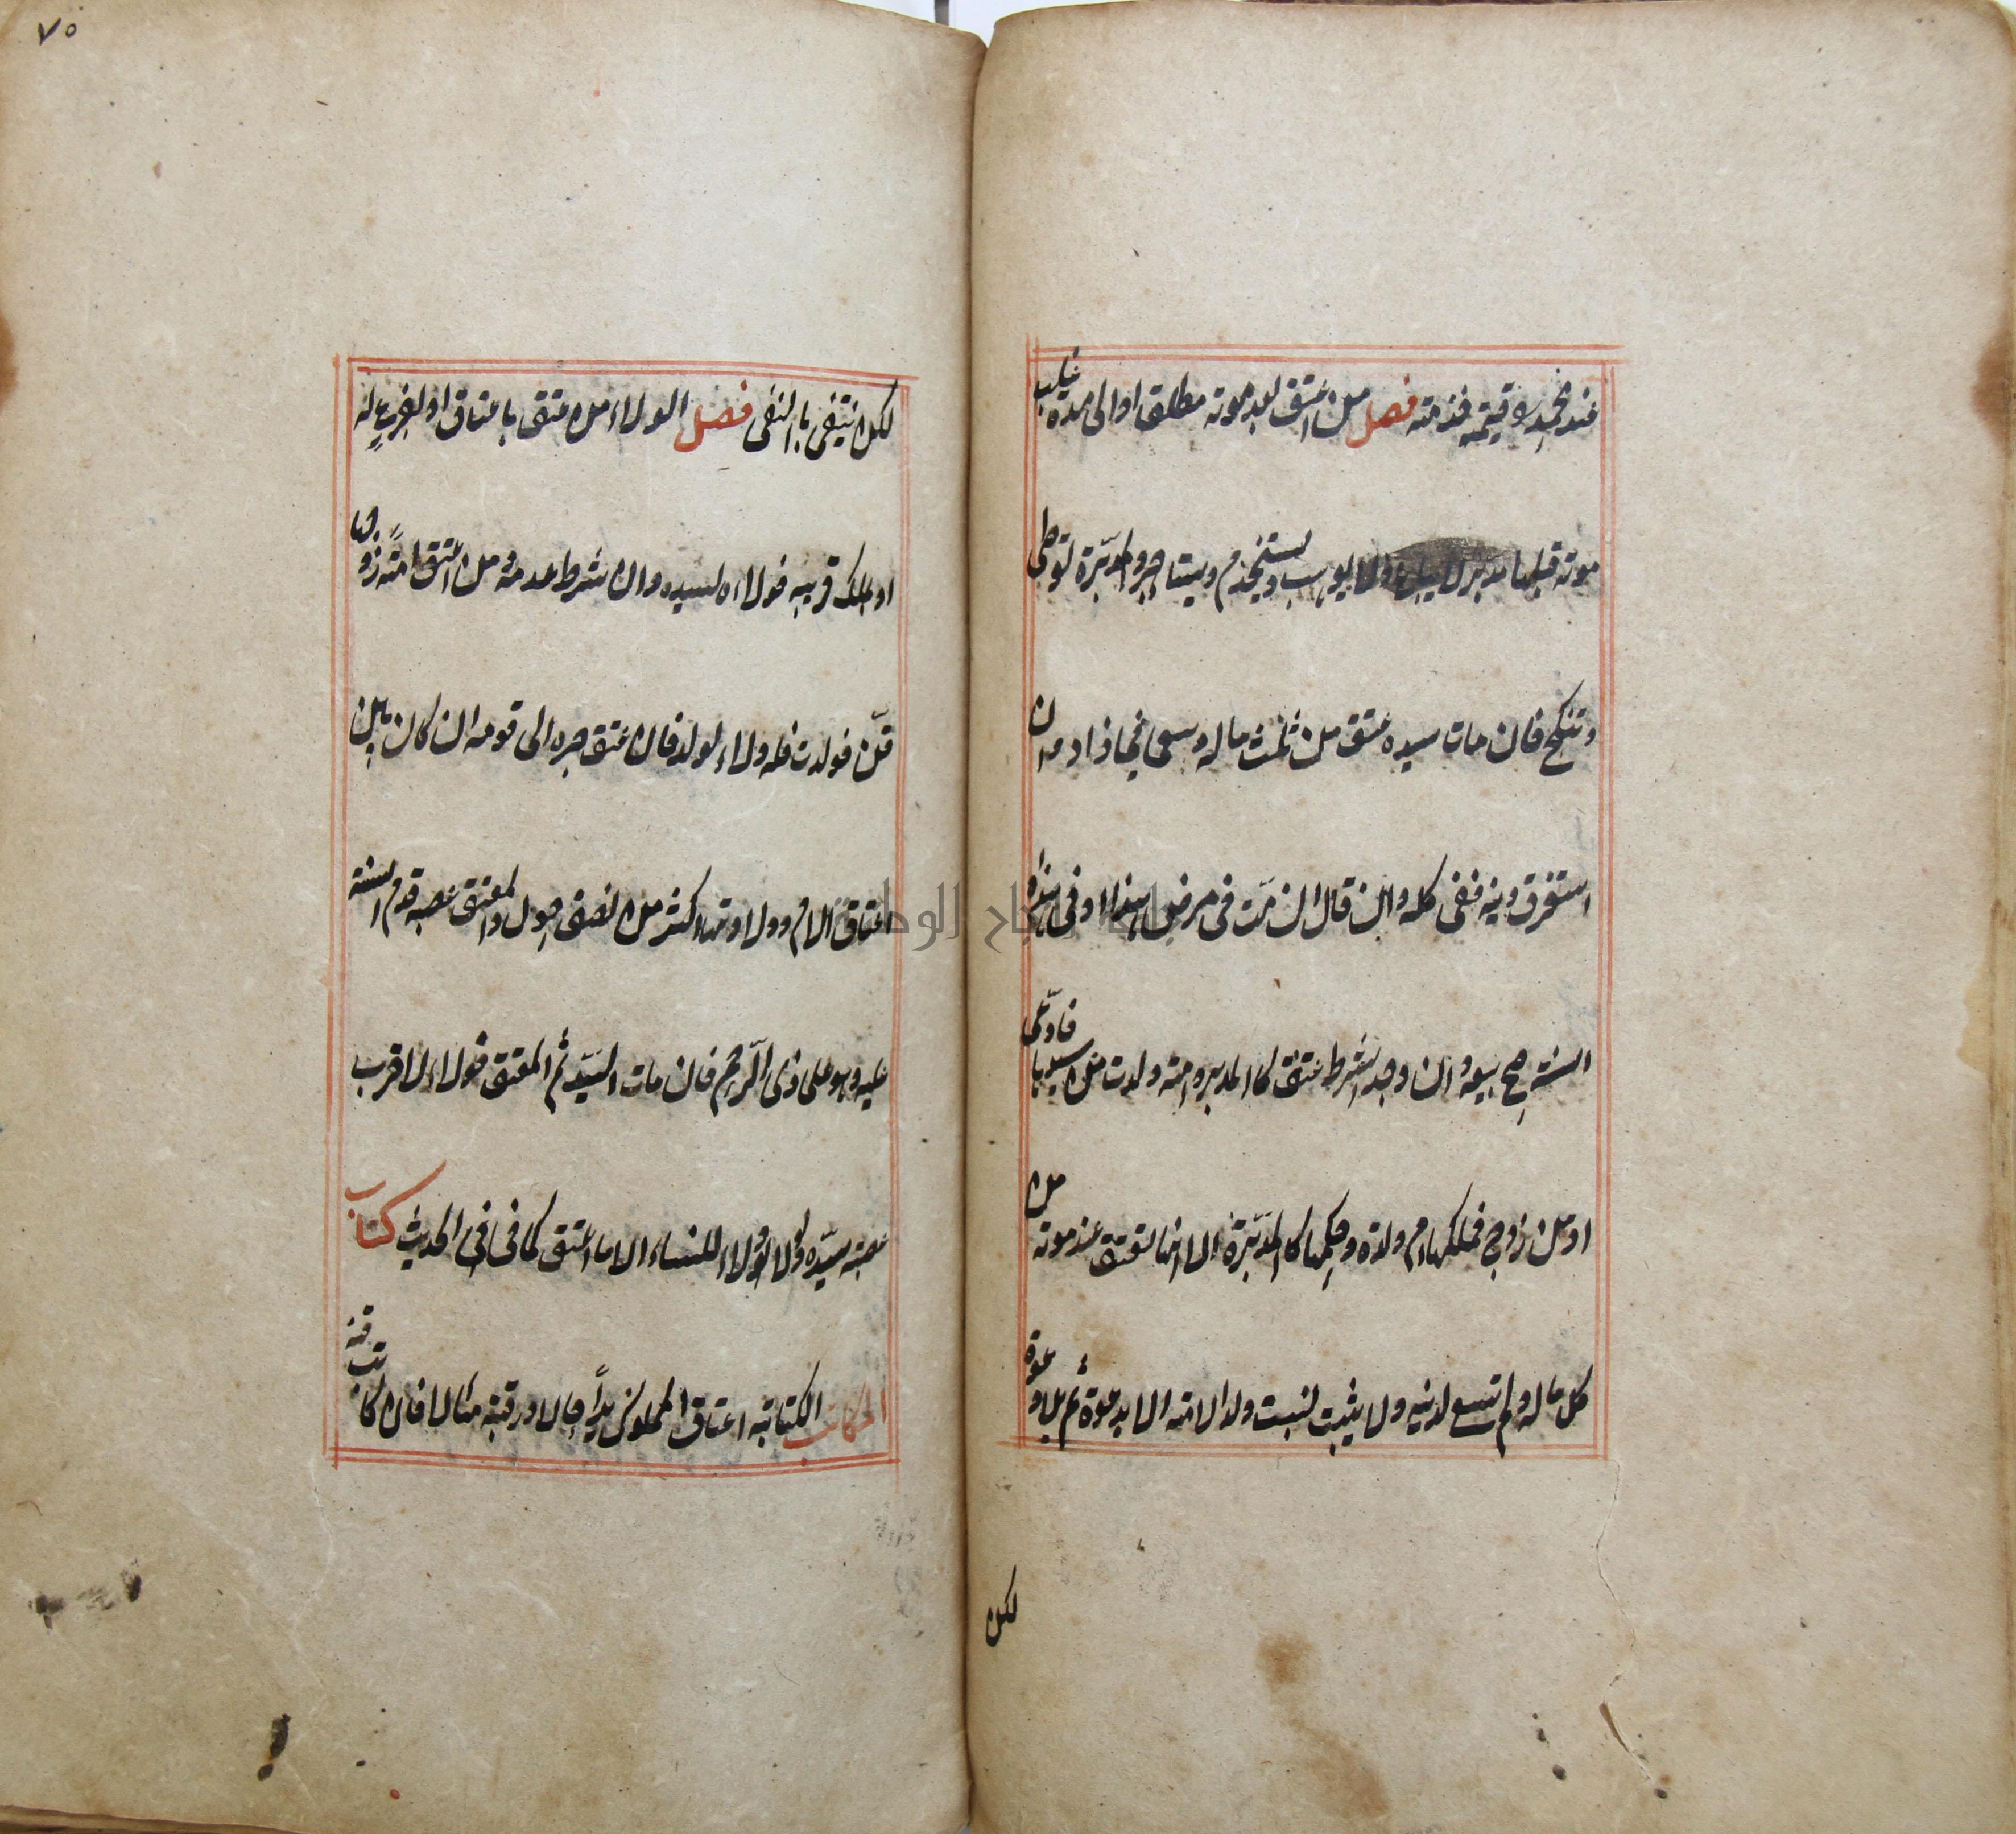 عند محمد وقيمته فذمته فصل من اعتق بعد موته مطلقا او الى مدة غلب
موته قبلها مدبر لا يباع ولا يوهب ويستخدم ويستاجر والمدبرة توطى
وتنكح فان مات سيده عتق من ثلث ماله وسعى فيما زاد وان
استغرق دينه ففى كله وان قال ان مت فى مرضى هذا او فى هذه
السنة صح بيعه وان وجد الشرط عتق كالمدبر وامة ولدت من سيدها فادعى
او من زوج فملكها ام ولده وحكمها كالمدبرة الا انها تعتق عند موته من
كل ماله ولم تسع لدينه ولا يثبت نسب ولد الامة الا بدعوة ثم بلا دعوة
لكن
٧٥
لكن ينتفى بالنفى فصل الولاء من عتق باعتاق او بفرع له
او ملك قريبه فولاءه لسيده وان شرط عدمه ومن اعتق امة زوجها
قن فولدت فله ولاء الولد فان عتق جره الى قومه ان كان بين
اعتاق الام وولادتها اكثر من نصف حول والمعتق عصبه قدم النسبية
عليه وهو على ذى الرحم فان مات السيد ثم المعتق فولاءه لاقرب
عصبة سيده ولا ولاء للنساء الا ما اعتق كما فى الحديث كتاب
المكاتب الكتابة اعتاق المملوك يدا حالا ورقبة مآلا فان كاتب قنه